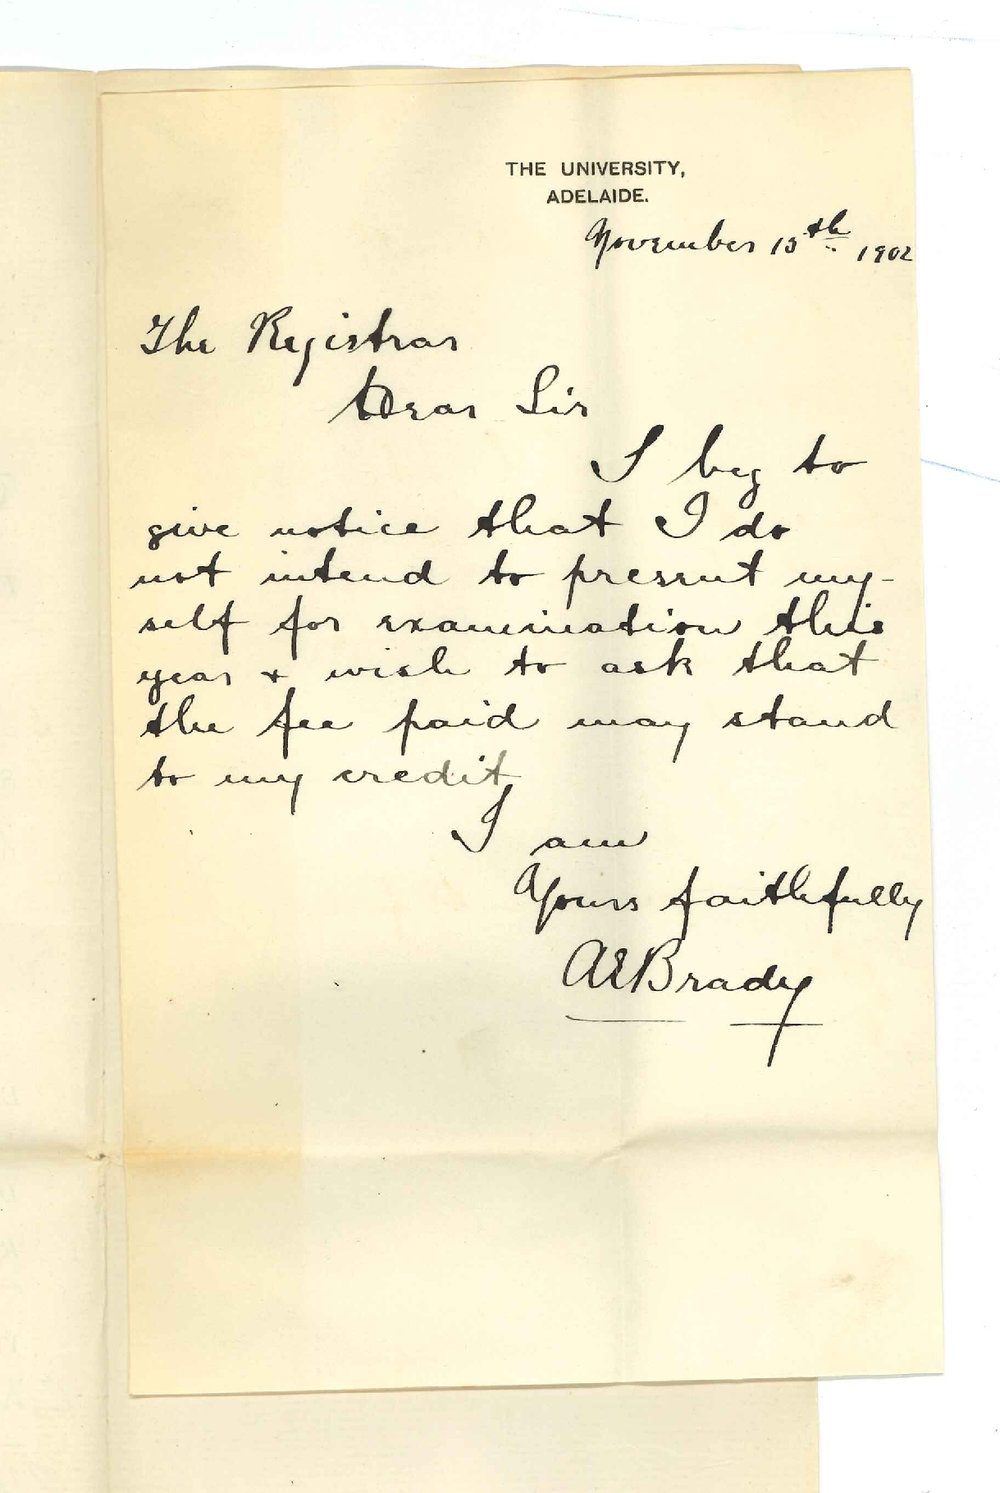 THE UNIVERSITY,
ADELAIDE.
November 15th 1902
The Registrar
Dear Sir
I beg to
give notice that I do
not intend to present my-
self for examination this
year + wish to ask that
the fee paid may stand
to my credit
I am
Yours faithfully
AEBrady